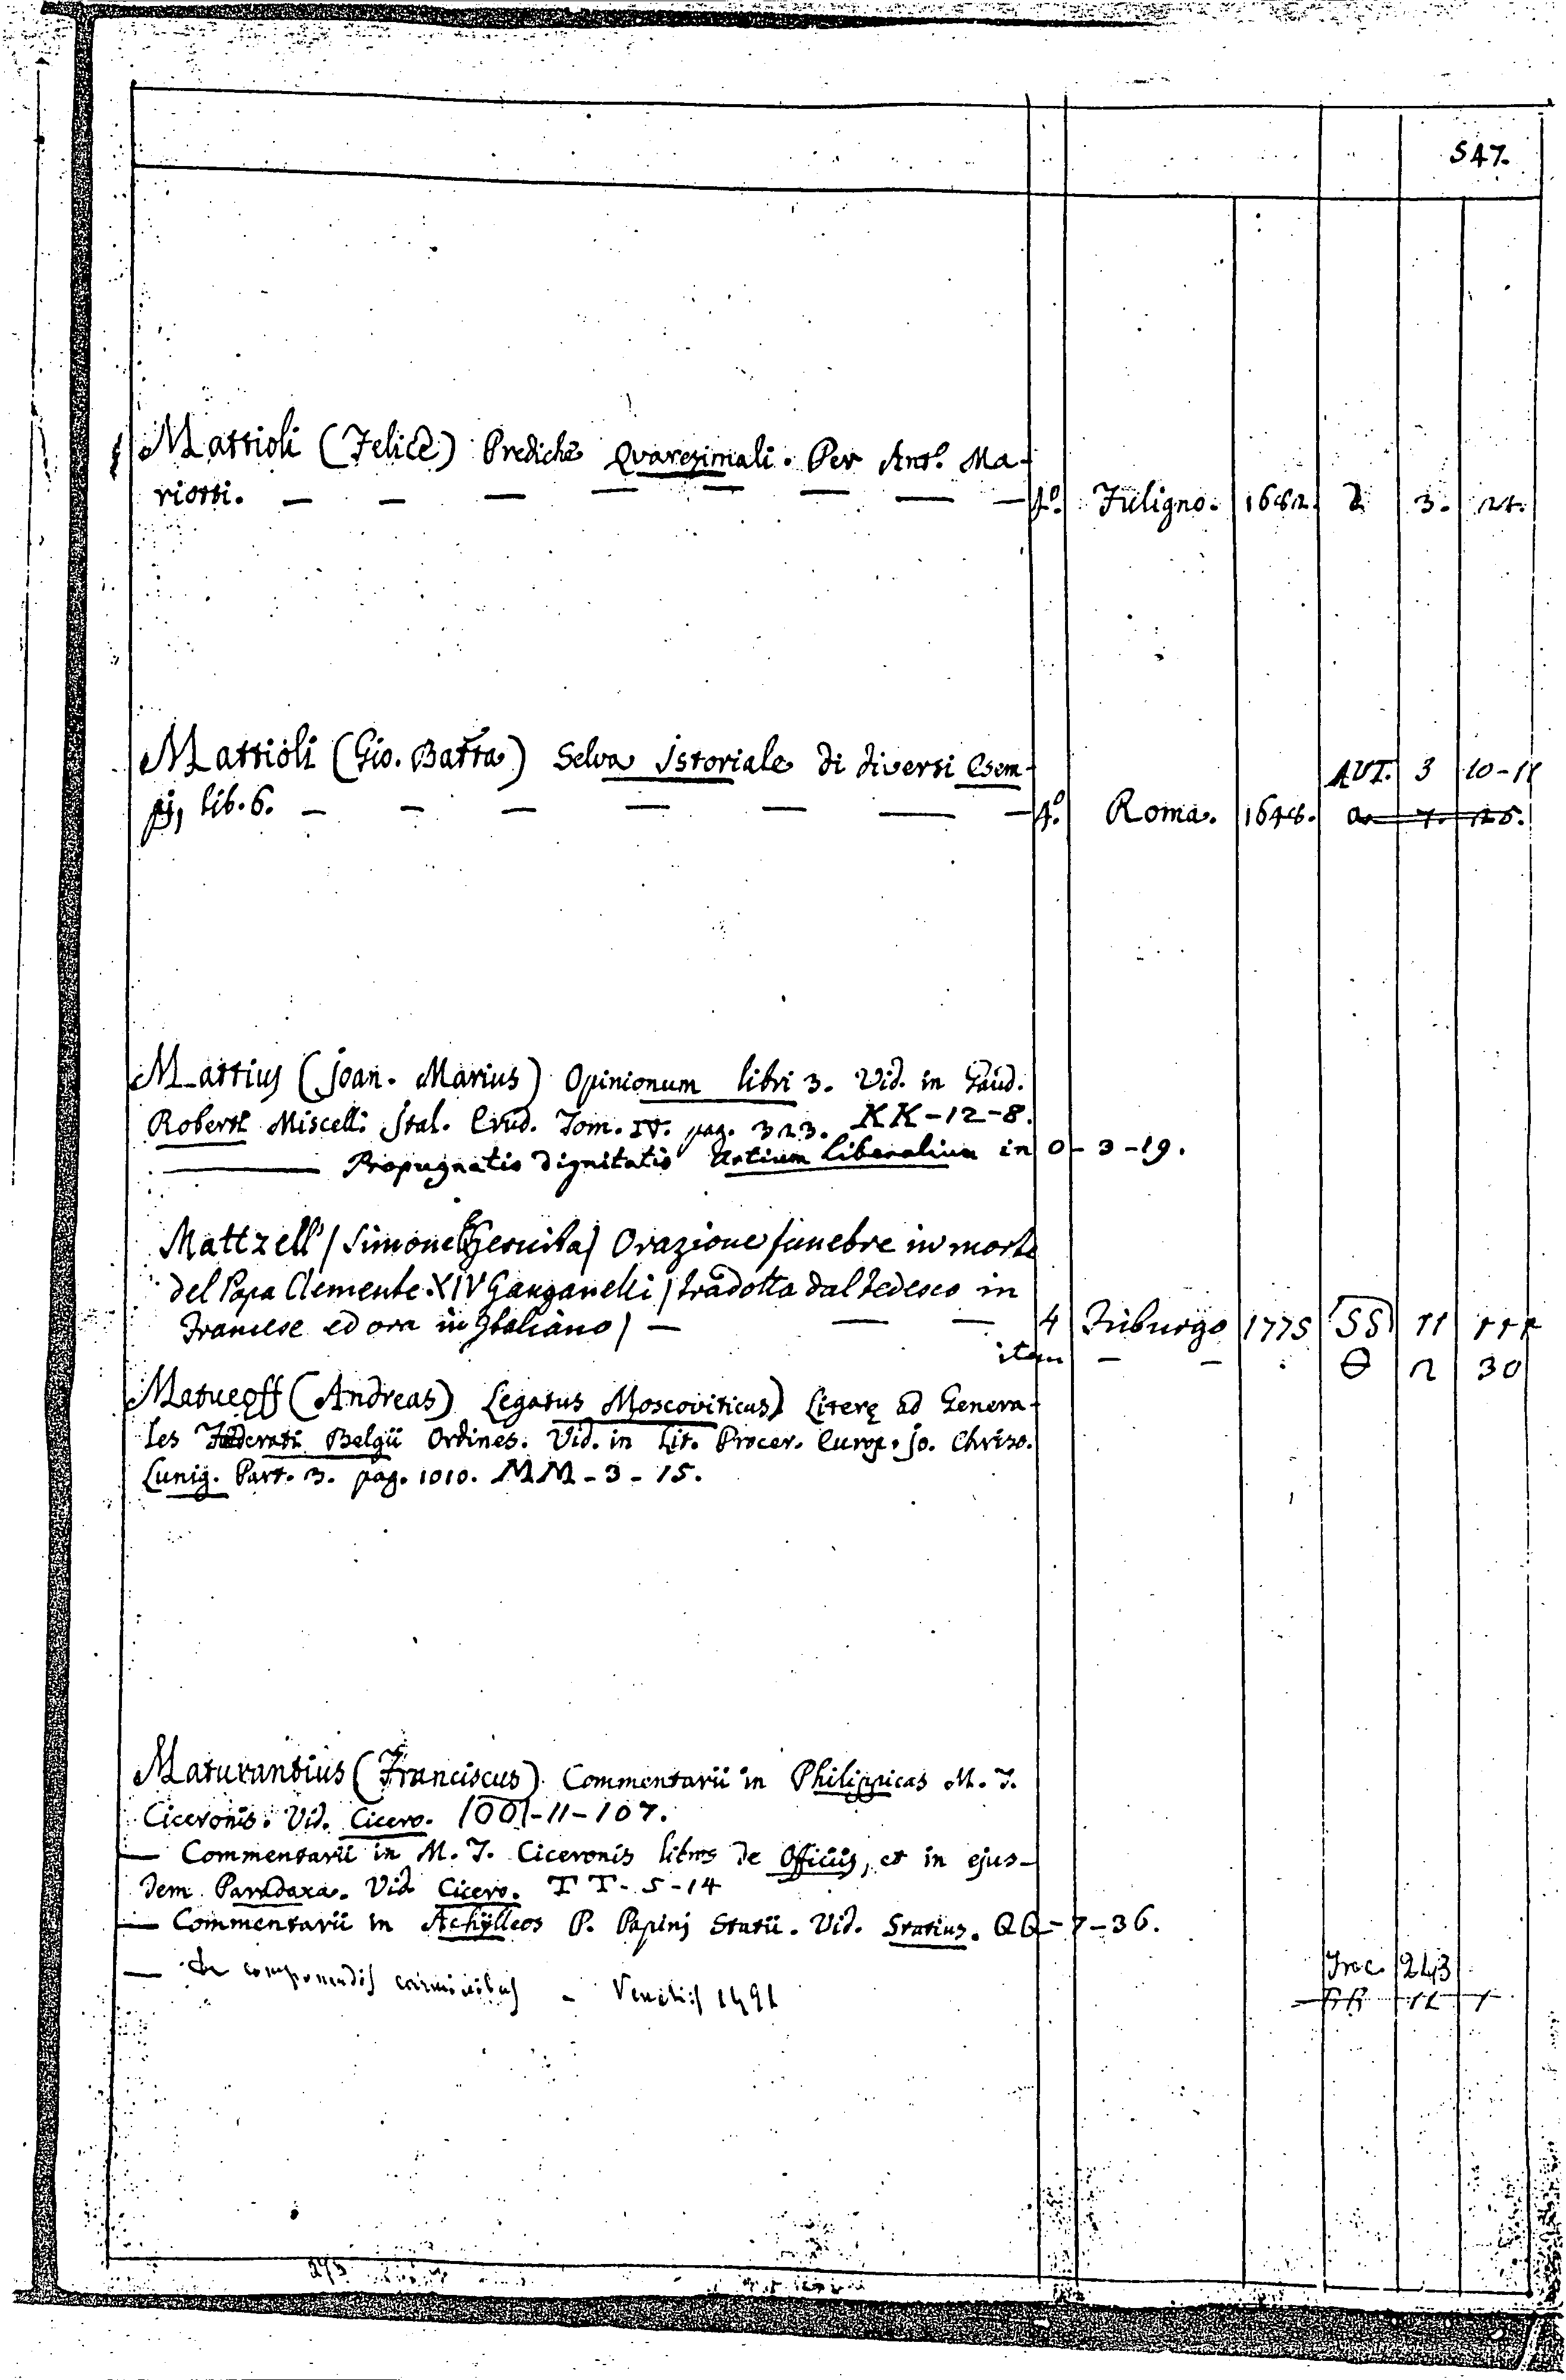 547.
Mattioli (Felice) Prediche Quaresimali. Per Ant.º Ma-
riotti. — — — — — — — — 4.º Fuligno. 1682. 2 3. 24.
Mattioli (Gio. Batta) Selva Istoriale di diversi Esem-
AUT. 3 10-11
pj, lib. 6. — — — — — — — 4.º Roma. 1648. a. 7. 26.
Mattius (Joan. Marius) Opinionum libri 3. Vid. in Gaud.
Roberti Miscell: Ital. Erud. Tom. IV. pag. 323. KK-12-8.
— Propugnatio dignitatis Artium liberalium in O-3-19.
Mattzell / Simone Gesuita / Orazione funebre in morte
del Papa Clemente XIV Ganganelli / tradotta dal tedesco in
Francese ed ora in Italiano / — — — 4 Friburgo 1775 SS 11
item — — Θ 2 30
Matueoff (Andreas) Legatus Moscoviticus) Literę ad Genera-
les Fœderati Belgii Ordines. Vid. in Lit. Procer. Europ. Jo. Christo.
Lunig. Part. 3. pag. 1010. MM-3-15.
Maturantius (Franciscus) Commentarii in Philippicas M. T.
Ciceronis. Vid. Cicero. OO-11-107.
— Commentarii in M. T. Ciceronis libros de Officiis, et in ejus-
dem Paradoxa. Vid. Cicero. TT-5-14
— Commentarii in Achylleos P. Papinj Statii. Vid. Statius. QQ-7-36.
— de componendis carminibus - Venetiis 1491
Inc. 243